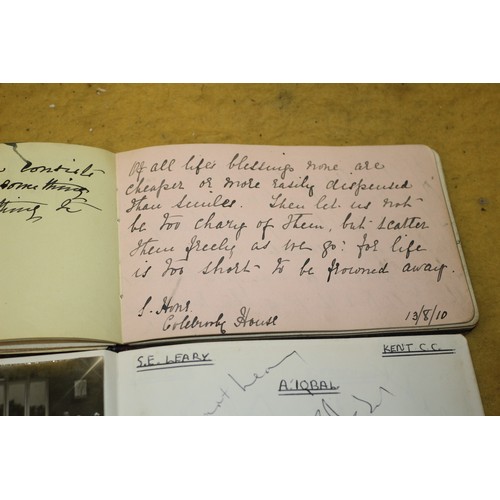 consists
something
thing &
Of all life's blessings none are
cheaper or more easily dispensed
than smiles. Then let us not
be too chary of them, but scatter
them freely as we go: for life
is too short to be frowned away.
S. Hons
House
13/8/10
S.E. LEARY
KENT C.C.
A. IQBAL